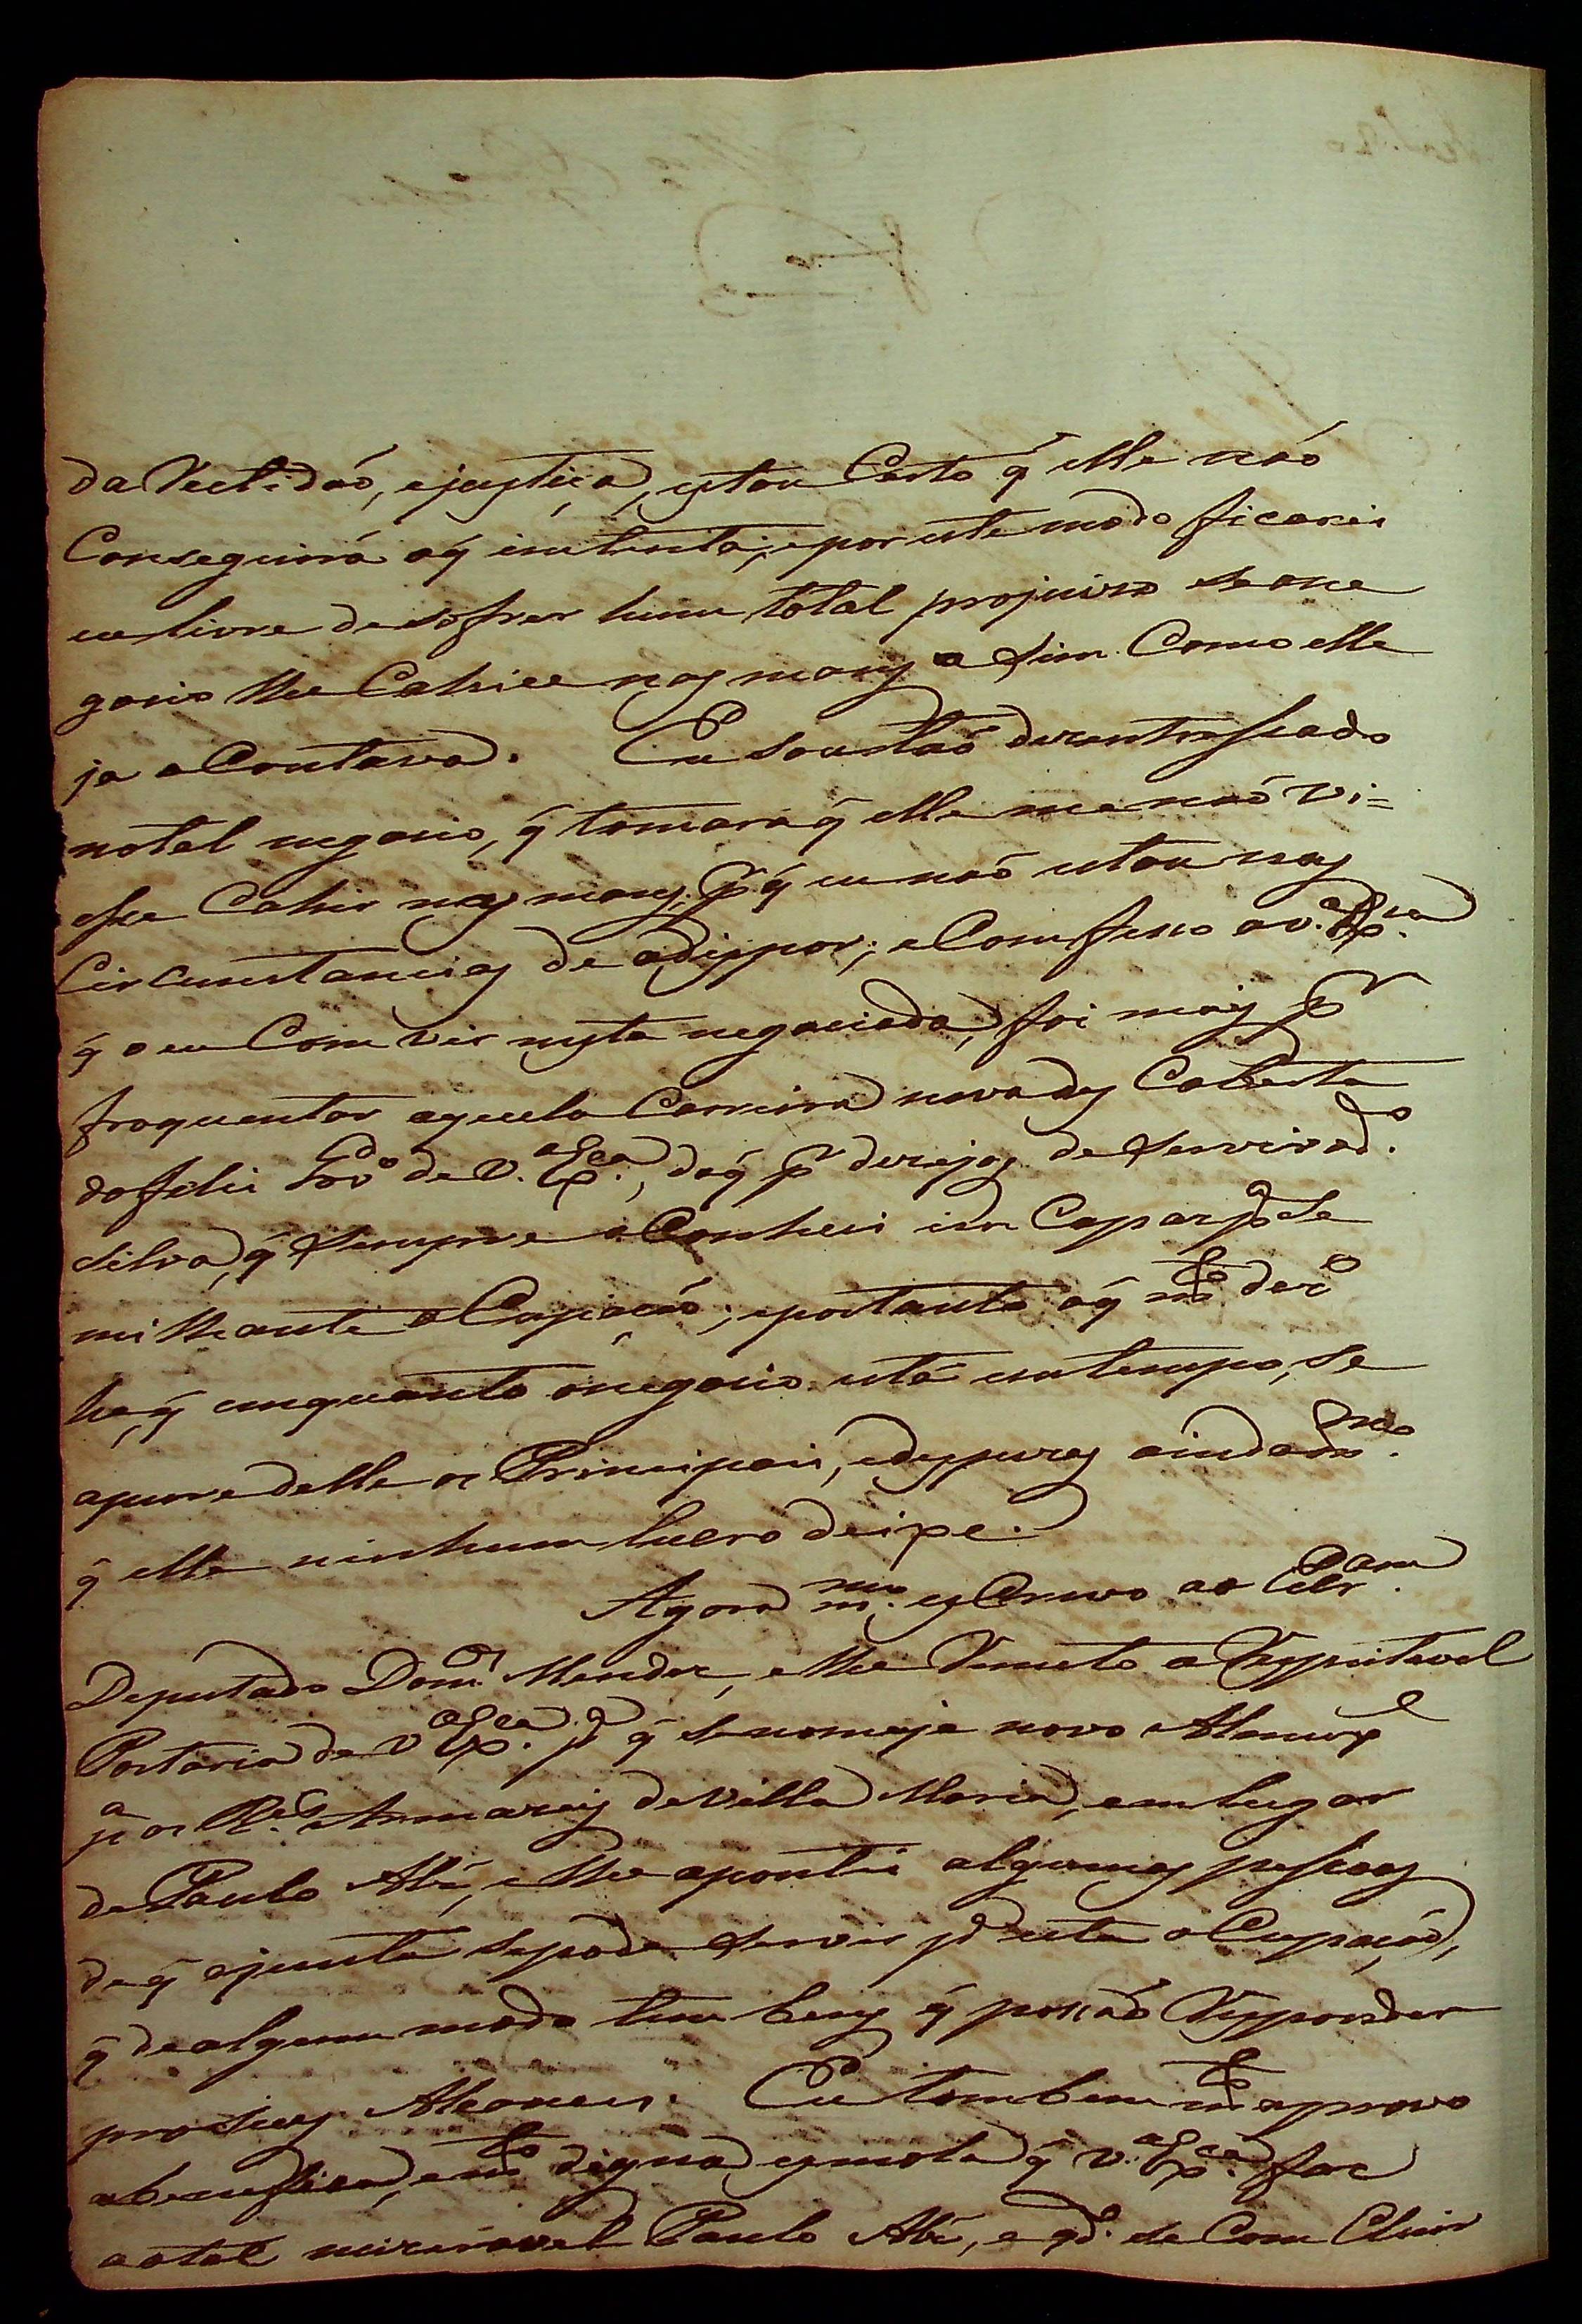 da Rectidaõ, ejustiça, estou Certo q̃ elle naõ
Conseguirá oq̃ intenta; epor este modo ficarei
eu livre de sofrer hum total projuizo se one
gocio lhe Cahice nas maos a sim Como elle
ja o Contava. Eu sou taõ dezentresado
notal negocio, q̃ tomara q̃ elle me naõ vi=
sse Cahir nas maos; p.r q̃ eu naõ estou nas
Circunstancias de odispor; e Comfeso a V. Ex.ca
q̃ o eu Com vir nesta negociada, foi mais p.r
froquentar aquela Carreira nova das Cabesta
do feliz Gov.o de V. Ex.ca, doq̃ p.r dezejos de servir ad.o
Silva, q̃ sempre o Conheci im Capaz p.a Se
milhante o Cupaçaõ; eportanto oq̃ m.to dez.o
he, q̃ emquanto onegocio está em tempo, se
apure delle os Principais, edespezas ainda m.mo
q̃ elle ninhum lucro deixe.
Agora m.mo esCrevo ao Cap.am
Deputado Dom.os Mendes, elhe Remeto a Respeitavel
Portaria de V Ex.ca p.a q̃ se nomeje novo Almox.e
p.a os R.es Armazeis de Villa Maria, em lugar
de Paulo Alz, elhe apontei algumas pessoas
de q̃ ajunta sepode servir p.a esta o Cupaçaõ,
q̃ de algum modo tem bens q̃ posaõ Responder
pro seus Alcances. Eu tombem m.to aprovo
abenefica, em.to digna esmola q̃ V. Ex.ca faz
aotal mizeravel Paulo Alz, e q.do se Com Cluir